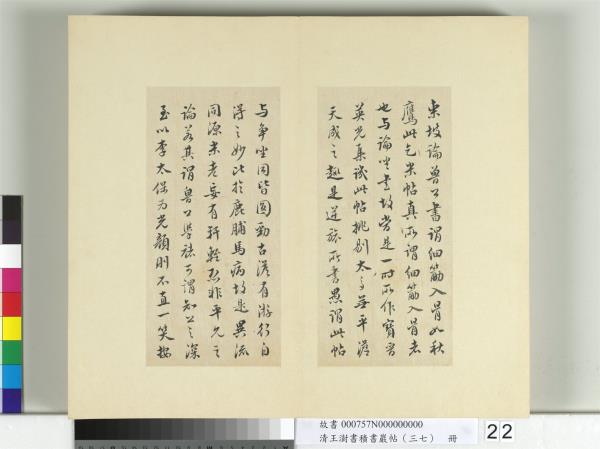 東坡論魯公書謂細筋入骨如秋
鷹此乞米帖真所謂細筋入骨者
也与論坐書故當是一時所作寶晉
英光集譏此帖挑剔太多無平淡
天成之趣是逆旅所書愚謂此帖
与爭坐同皆圓勁古淡有游行自
得之妙比於鹿脯馬病故是異流
同源米老妄有軒輊恐非平允之
論若其謂魯公學褚可謂知公之深
至以李太保为光顏則不直一笑按
故書 000757N000000000
清王澍書積書巖帖(三七) 冊
22